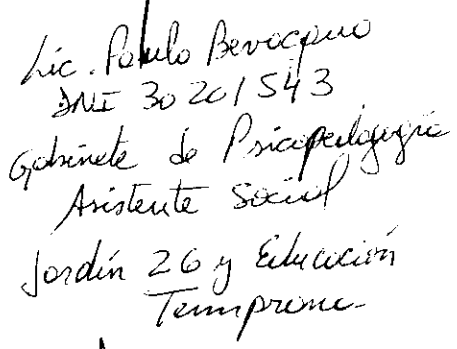 Lic. Paulo Bevacqua
DNI 30 201 543
Gabinete de Psicopedagogía
Asistente Social
Jardín 26 y Educación
Temprana